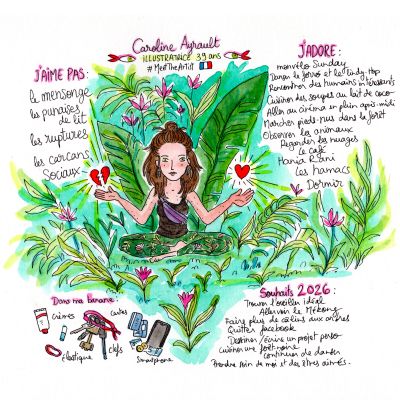 Caroline Ayrault
ILLUSTRATRICE 39 ans
#MeetTheArtist
J'AIME PAS :
le mensonge
les punaises
de lit
les ruptures
les carcans
Sociaux
J'ADORE :
Sunday
Danser le forró et le Lindy-Hop
Rencontrer des humains intéressants
Cuisiner des soupes au lait de coco
Aller au cinéma en plein après-midi
Marcher pieds-nus dans la forêt
Observer les animaux
Regarder les nuages
le café
Hania Rani
les hamacs
Dormir
Dans ma banane :
crèmes
cartes
élastique
clefs
Smartphone
Souhaits 2026 :
Trouver l'oreiller idéal
Aller voir le Mékong
Faire plus de câlins aux arbres
Quitter facebook
Dessiner/écrire un projet perso
Cuisiner une forêt noire
Continuer de danser
Prendre soin de moi et des êtres aimés.